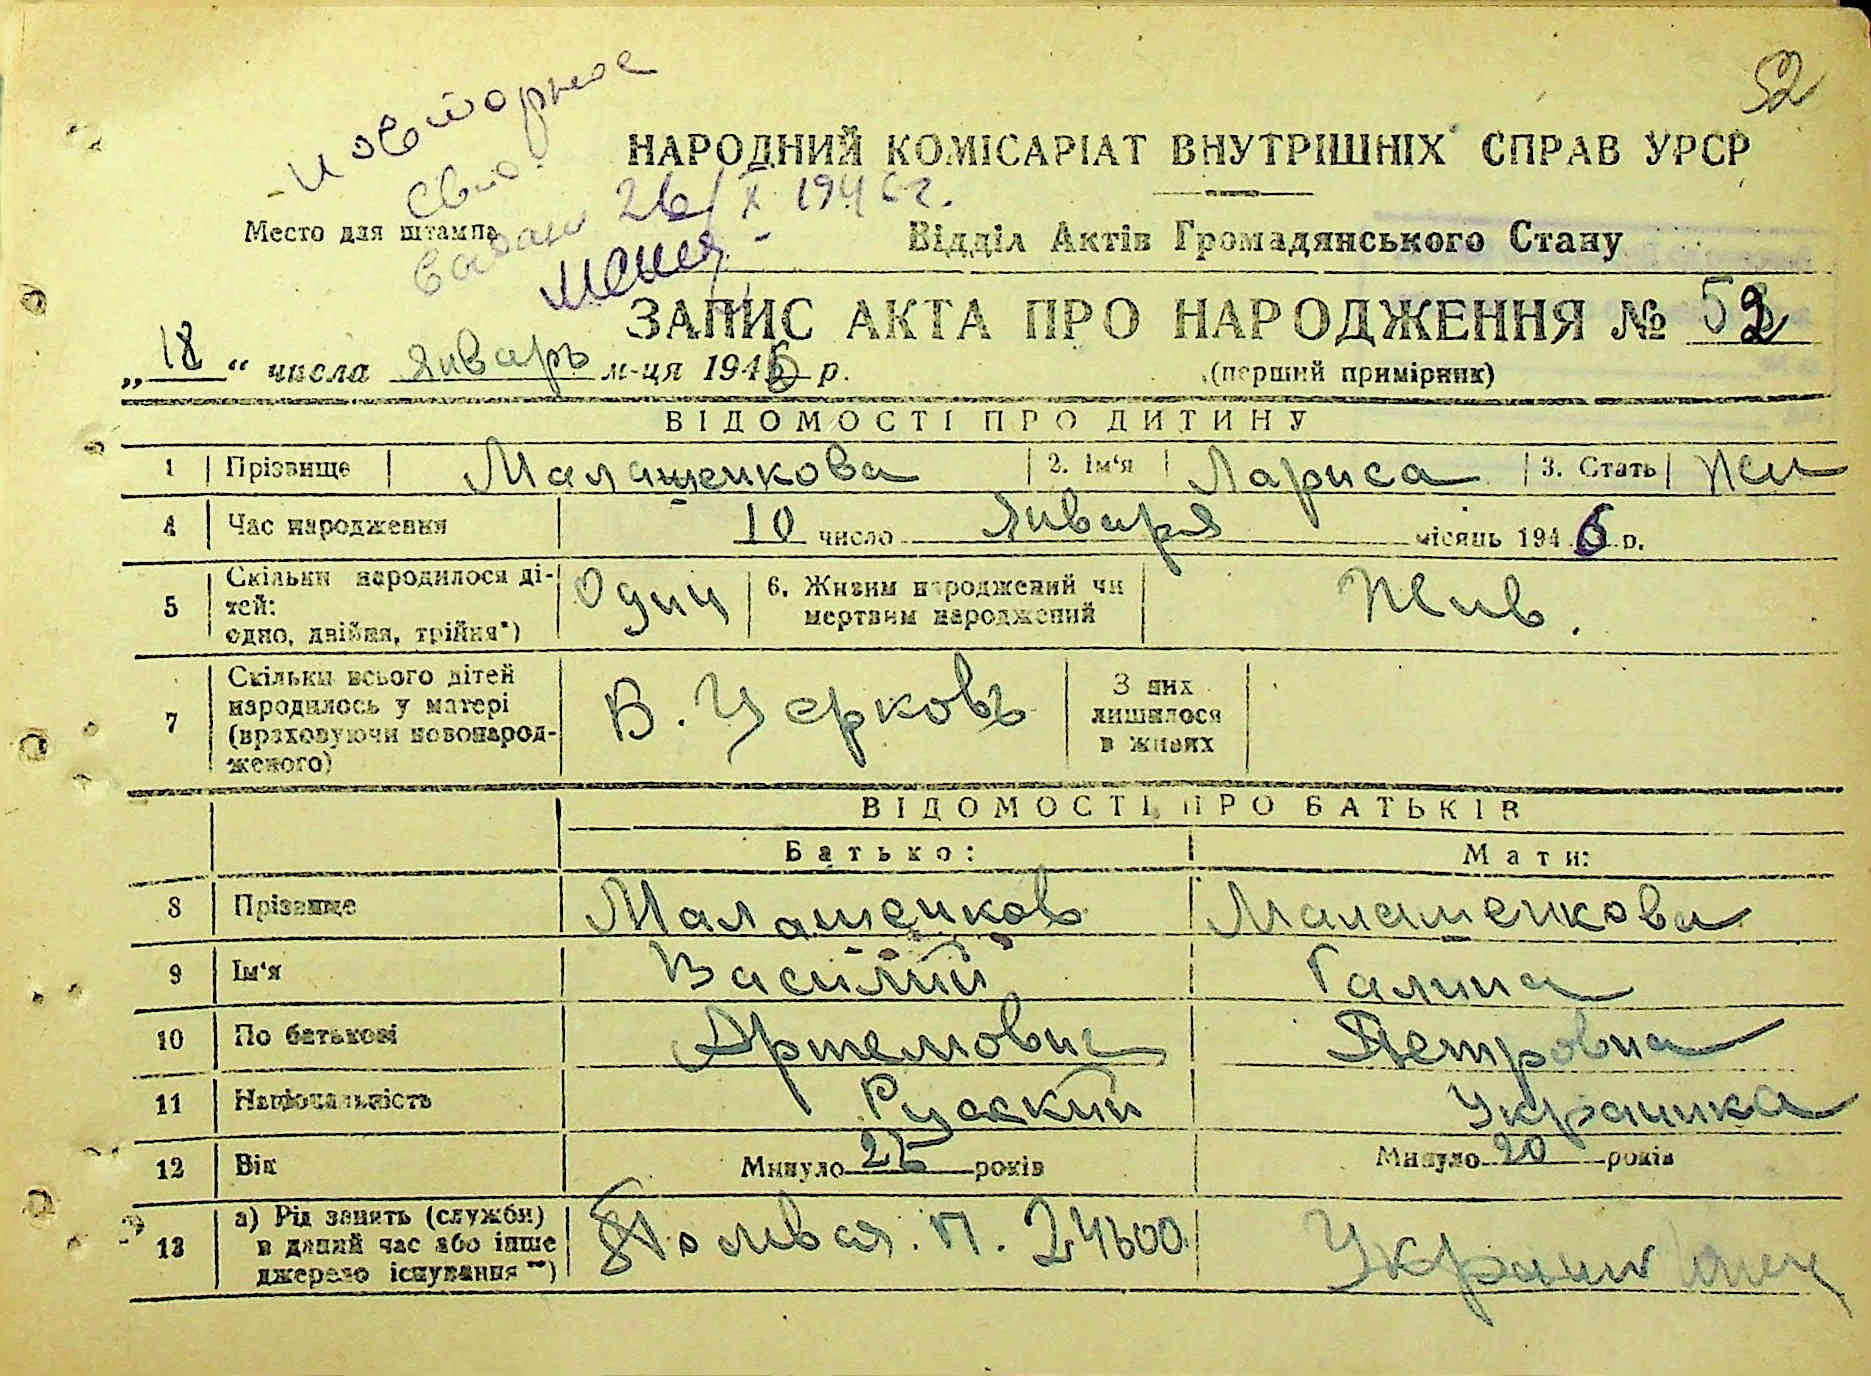 52
повторное
свид.
НАРОДНИЙ КОМІСАРІАТ ВНУТРІШНІХ СПРАВ УРСР
26/X 1946 г.
Место для штампа
Відділ Актів Громадянського Стану
ЗАПИС АКТА ПРО НАРОДЖЕННЯ № 52
„18“ числа Январь м-ця 1946 р. (перший примірник)
ВІДОМОСТІ ПРО ДИТИНУ
1 Прізвище Малашенкова 2. Ім'я Лариса 3. Стать Жен
4 Час народження 10 число Января місяць 1946 р.
5 Скільки народилося ді-
тей:
одно, двійня, трійня*) Один 6. Живим народжений чи
мертвим народжений Жив.
7 Скільки всього дітей
народилось у матері
(враховуючи новонарод-
женого) Б. Церковь З них
лишилося
в живих
ВІДОМОСТІ ПРО БАТЬКІВ
Батько: Мати:
8 Прізвище Малашенков Малашенкова
9 Ім'я Василий Галина
10 По батькові Артемович Петровна
11 Національність Русский Украинка
12 Вік Минуло 25 років Минуло 20 років
13 а) Рід занять (служби)
в даний час або інше
джерело існування **) Полевая. П. 24600